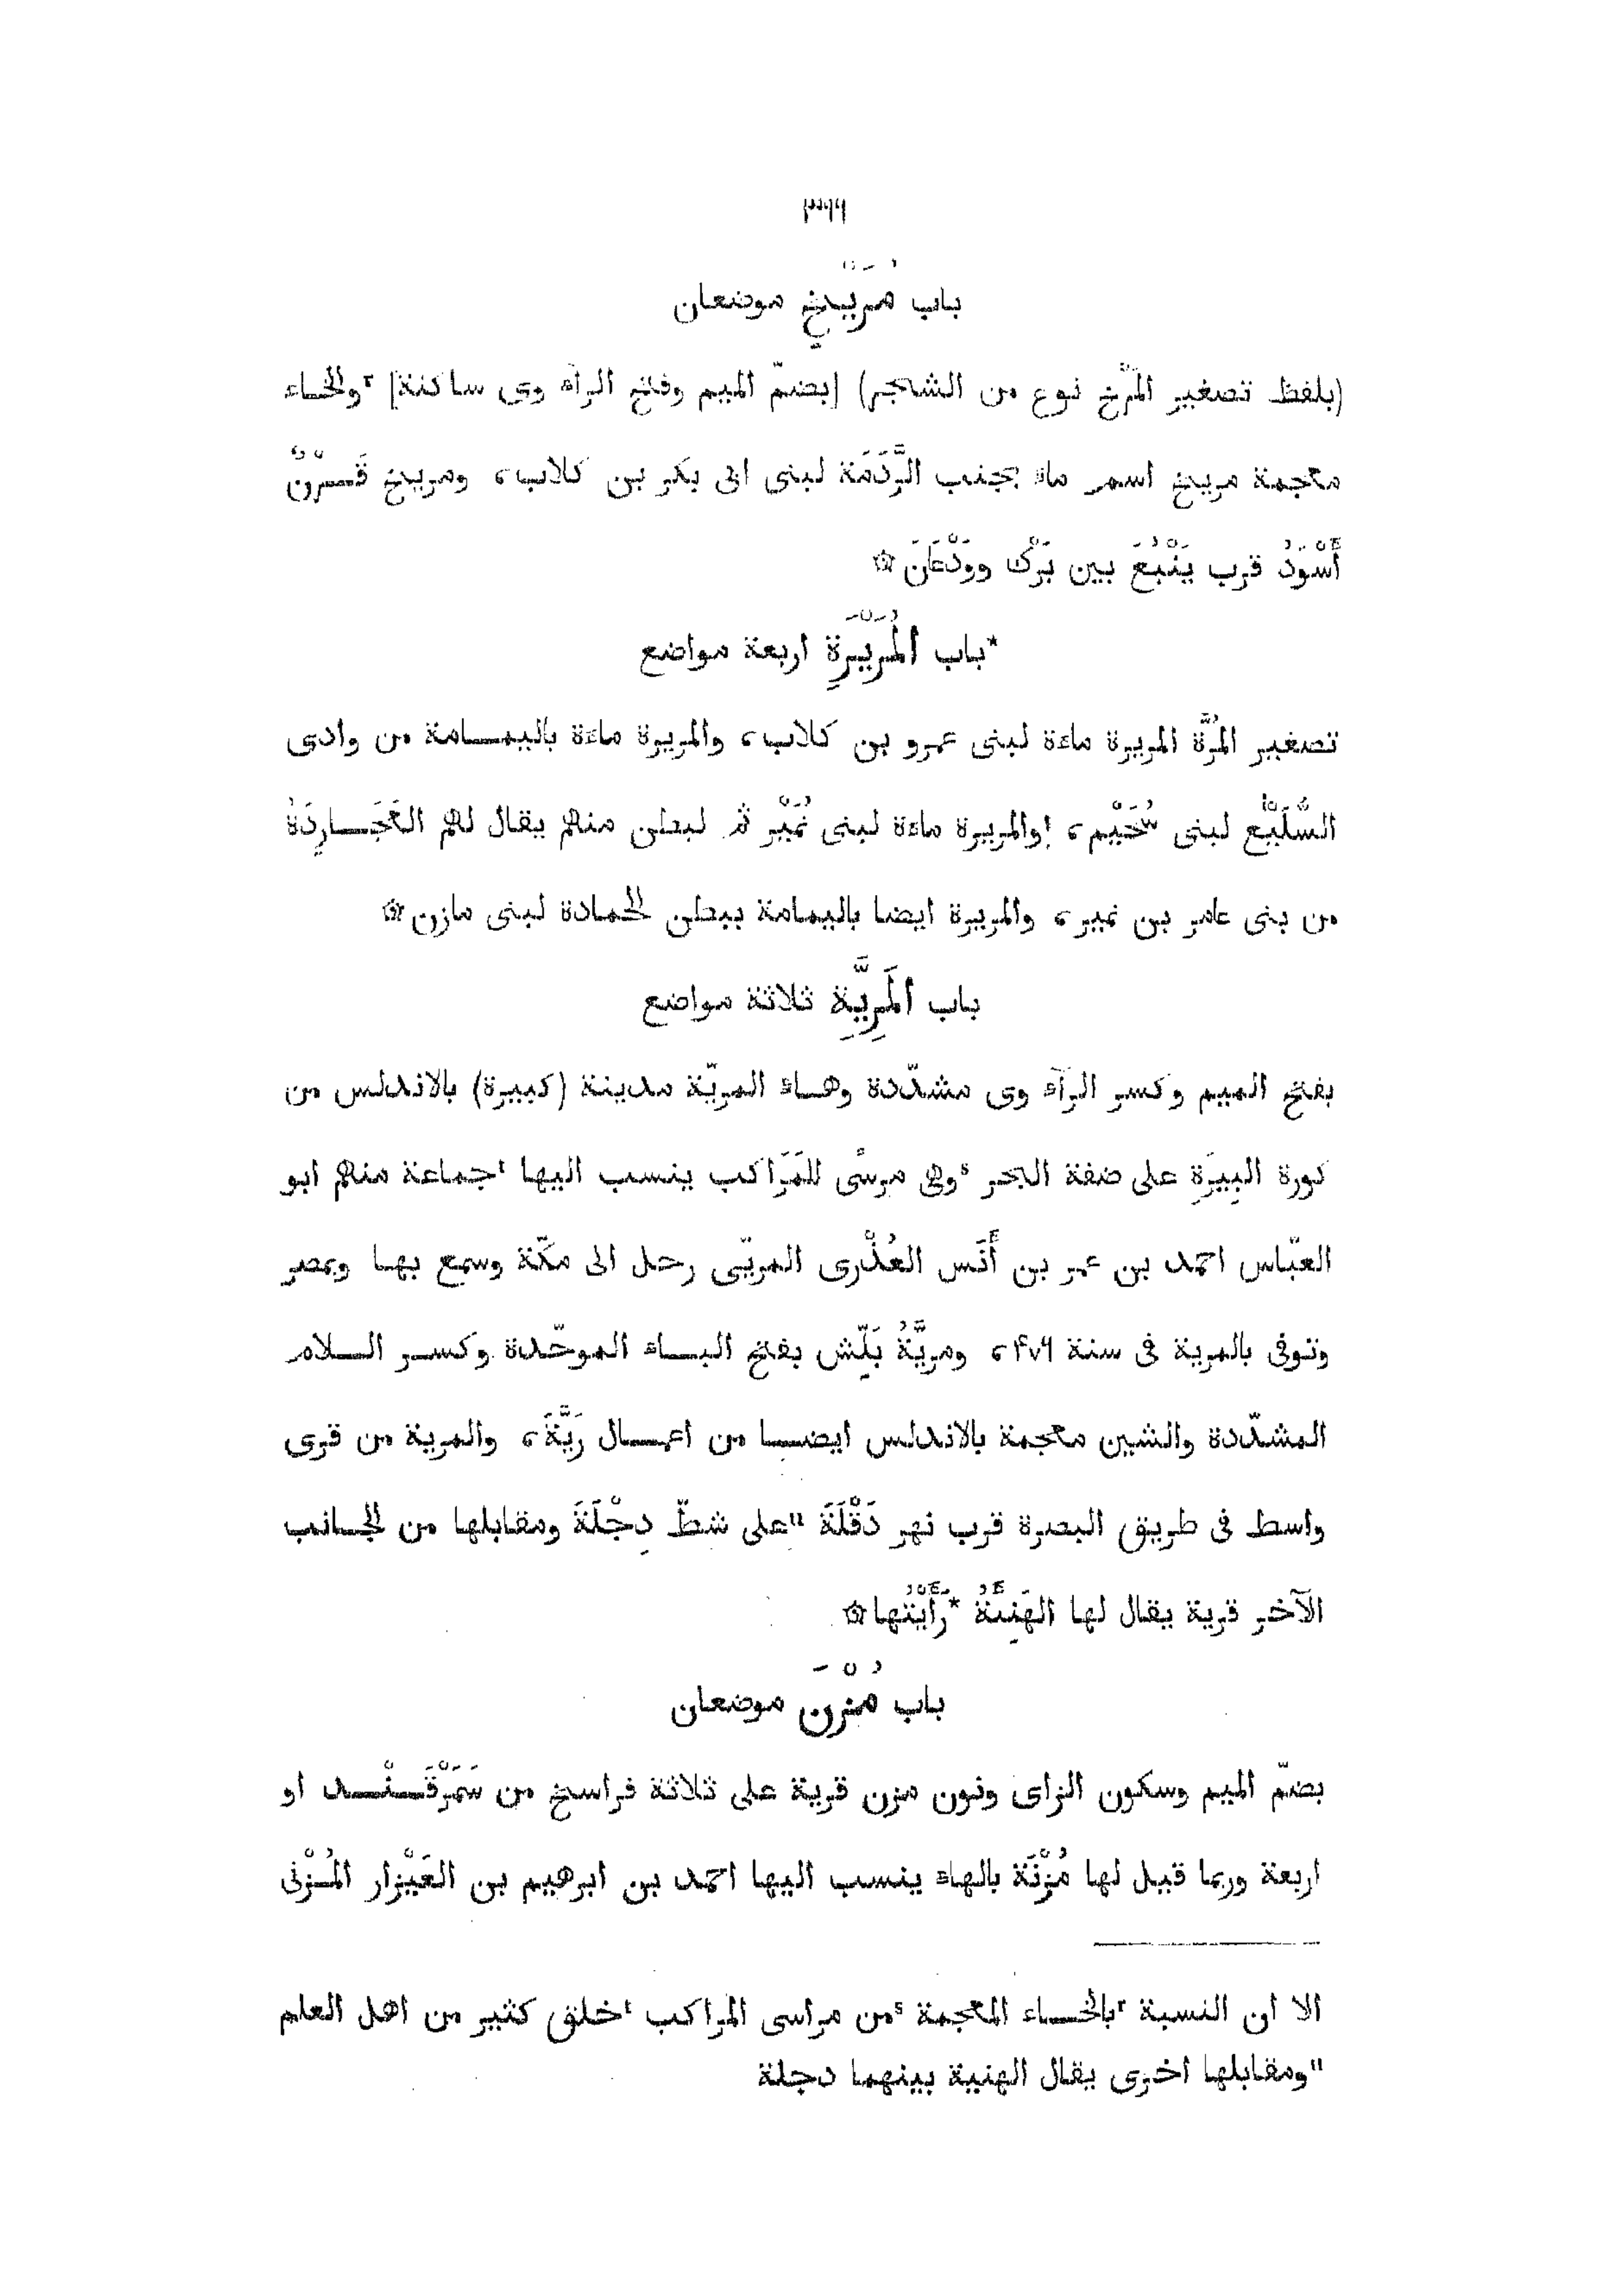 ٣٩٦
باب مُرَيْخٍ موضعان
(بلفظ تصغير المَرْخ نوع من الشجر) [بضمّ الميم وفتح الرآء وى ساكنة] ʳوالخاء
معجمة مريخ اسم ماء بجنب الرَّدَمَة لبنى ابى بكر بن كلاب، ومريخ قَرْنٌ
أَسْوَدُ قرب يَنْبُعَ بين بَرْك ووَدْعَانَ ۞
*باب المُرَيْرَةِ اربعة مواضع
تصغير المُرَّة المريرة ماءة لبنى عمرو بن كلاب، والمريرة ماءة باليمامة من وادى
السُّلَيْع لبنى سُحَيْم، [والمريرة ماءة لبنى نُمَيْر ثم لبطن منهم يقال لهم العَجَارِدَةُ
من بنى عامر بن نمير، والمريرة ايضا باليمامة ببطن الحمادة لبنى مازن ۞
باب المَرِيَّةِ ثلاثة مواضع
بفتح الميم وكسر الرآء وى مشدّدة وهاء المريّة مدينة (كبيرة) بالاندلس من
كورة البِيرَةِ على ضفة البحر ˢوهى مرسًى للمَرَاكب ينسب اليها ᵗجماعة منهم ابو
العبّاس احمد بن عمر بن أَنَس العُذْرى المريّى رحل الى مكّة وسمع بها وبمصر
وتوفى بالمرية فى سنة ۴٧٩، ومرِيَّةُ بَلِّش بفتح الباء الموحّدة وكسر اللام
المشدّدة والشين معجمة بالاندلس ايضا من اعمال رَيَّةَ، والمرية من قرى
واسط فى طريق البصرة قرب نهر دَقْلَةَ ᵘعلى شطّ دِجْلَةَ ومقابلها من الجانب
الآخر قرية يقال لها الهَنِئَةُ *رَأَيْتُها ۞
باب مُزْنَ موضعان
بضمّ الميم وسكون الزاى ونون مزن قرية على ثلاثة فراسخ من سَمَرْقَنْد او
اربعة وربما قيل لها مُزْنَة بالهاء ينسب اليها احمد بن ابرهيم بن العَيْزار المُزْنى
الا ان النسبة ʳبالخاء المعجمة ˢمن مراسى المراكب ᵗخلق كثير من اهل العلم
ᵘومقابلها اخرى يقال الهنية بينهما دجلة